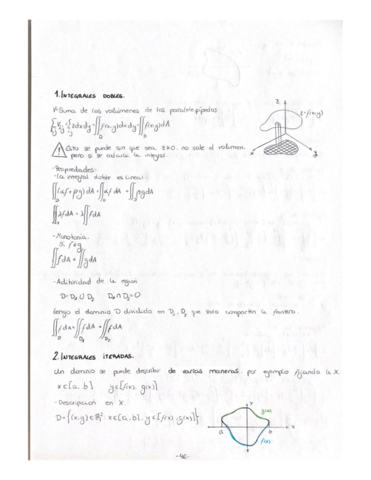 1. INTEGRALES DOBLES.
V=Suma de los volúmenes de los paralelepípedos
z=f(x,y)
Esto se puede sin que sea z>0. no sale el volumen,
pero sí se calcula la integral.
- Propiedades -
- La integral doble es lineal
∬ λf dA = λ∬
- Monotonía
si f≤g
∬ f dA ≤ ∬ g dA
- Aditividad de la región
D = D₁ ∪ D₂ D₁ ∩ D₂ = ∅
tengo el dominio D dividido en D₁, D₂ que solo comparten la frontera.
2. INTEGRALES ITERADAS.
Un dominio se puede describir de varias maneras, por ejemplo fijando la X.
x∈[a, b] y∈[f(x), g(x)]
- Descripción en X.
D={(x,y)∈ℝ²: x∈[a,b], y∈[f(x),g(x)]}
g(x)
a b x
f(x)